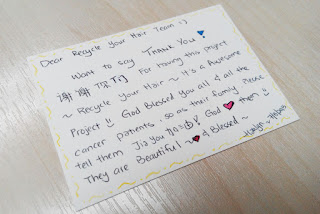 Dear Recycle Your Hair Team :)
Want to say Thank You
谢谢你们 For having this project
~ Recycle Your Hair ~ It's a Awesome
Project !! God Blessed you all & all the
cancer patients, so as their family. Please
tell them Jia You 加油! God ♥ them !!
They are Beautiful ~ ♥ & Blessed ~